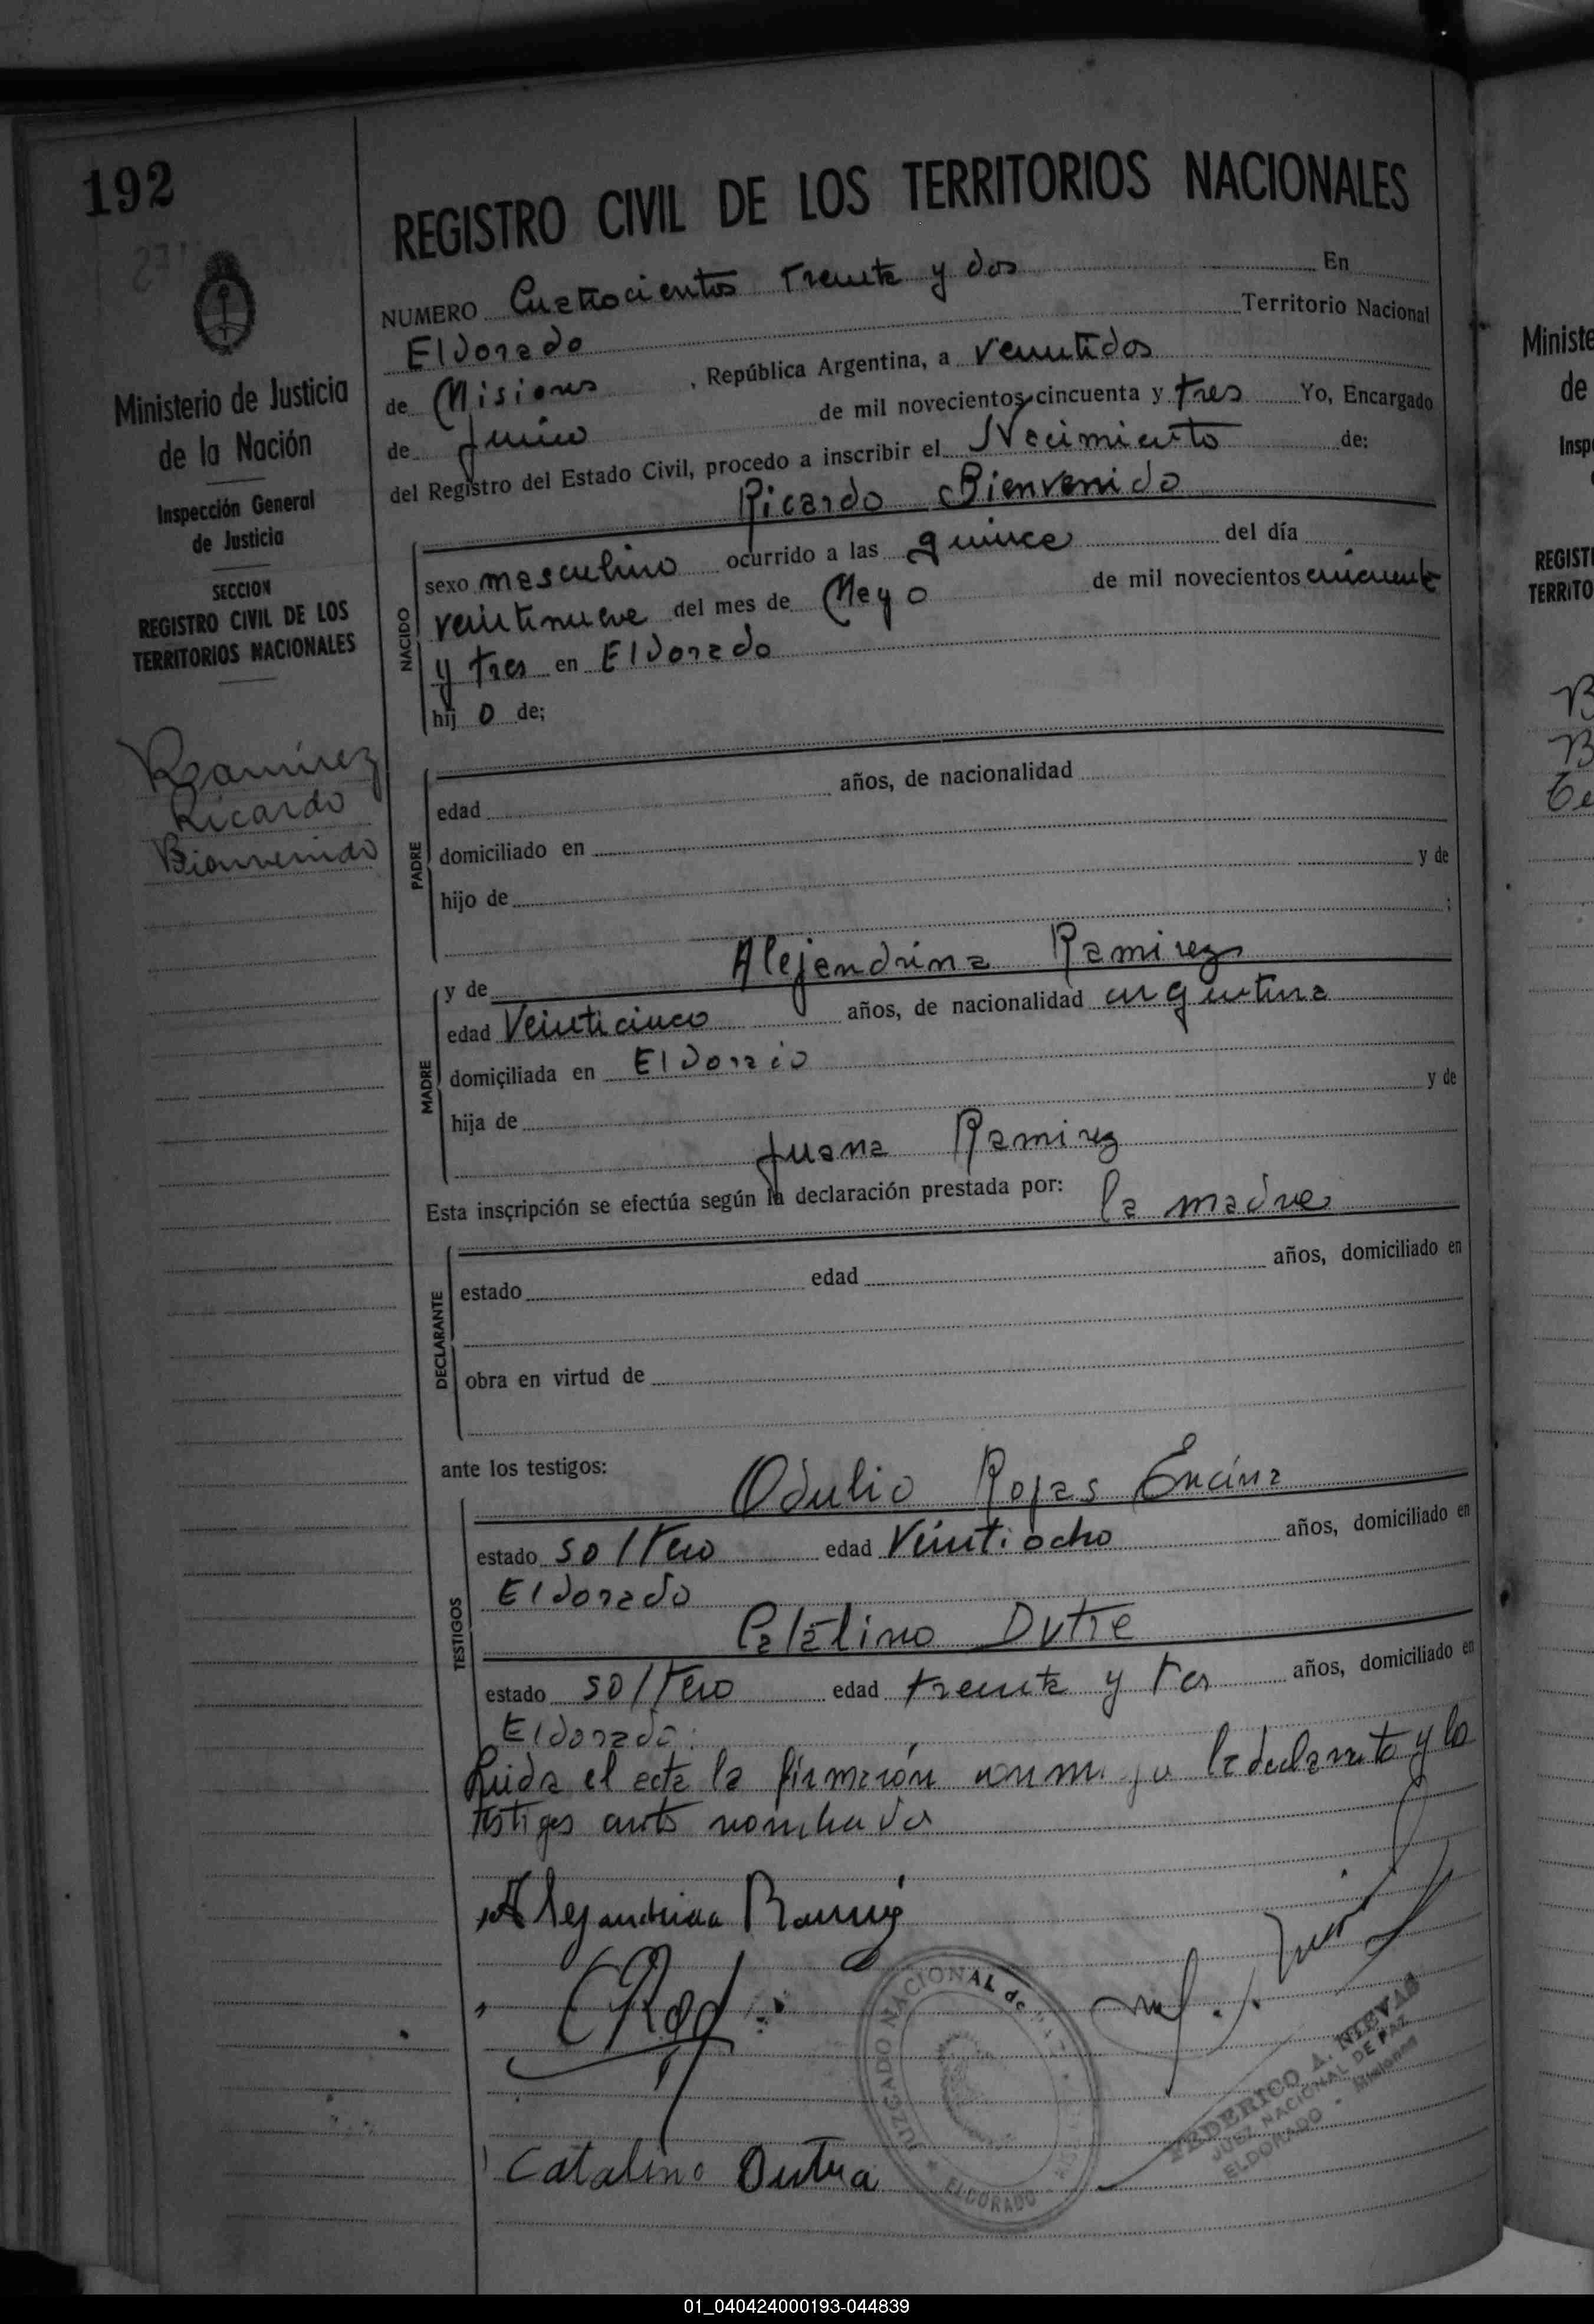 192
REGISTRO CIVIL DE LOS TERRITORIOS NACIONALES
NUMERO Cuatrocientos treinta y dos En
Eldorado Territorio Nacional
de Misiones , República Argentina, a veintidos
de Junio de mil novecientos cincuenta y tres Yo, Encargado
del Registro del Estado Civil, procedo a inscribir el Nacimiento de:
Ricardo Bienvenido
Ministerio de Justicia
de la Nación
Inspección General
de Justicia
SECCION
REGISTRO CIVIL DE LOS
TERRITORIOS NACIONALES
Ramirez
Ricardo
Bienvenido
NACIDO
sexo masculino ocurrido a las quince del día
veintinueve del mes de Mayo de mil novecientos cincuenta
y tres en Eldorado
hij o de;
PADRE
edad años, de nacionalidad
domiciliado en
hijo de y de
;
MADRE
y de Alejandrina Ramirez
edad Veinticinco años, de nacionalidad argentina
domiciliada en Eldorado
hija de y de
Juana Ramirez
Esta inscripción se efectúa según la declaración prestada por: la madre
DECLARANTE
estado edad años, domiciliado en
obra en virtud de
ante los testigos:
TESTIGOS
Odulio Rojas Encina
estado soltero edad Veintiocho años, domiciliado en
Eldorado
Catalino Dutra
estado soltero edad treinta y tres años, domiciliado en
Eldorado.
Leida el acta la firmarón conmigo la declarante y los
testigos antes nombrados
Alejandrina Ramirez
Catalino Dutra
JUZGADO NACIONAL de
ELDORADO
FEDERICO A. NIEVAS
JUEZ NACIONAL DE PAZ
ELDORADO - Misiones
Ministe
de
Insp
REGIST
TERRITO
01_040424000193-044839